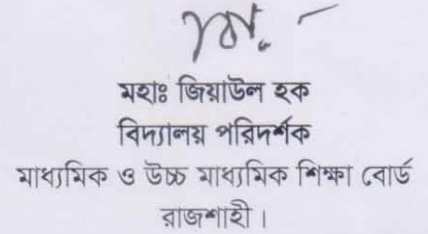 মহাঃ জিয়াউল হক
বিদ্যালয় পরিদর্শক
মাধ্যমিক ও উচ্চ মাধ্যমিক শিক্ষা বোর্ড
রাজশাহী।